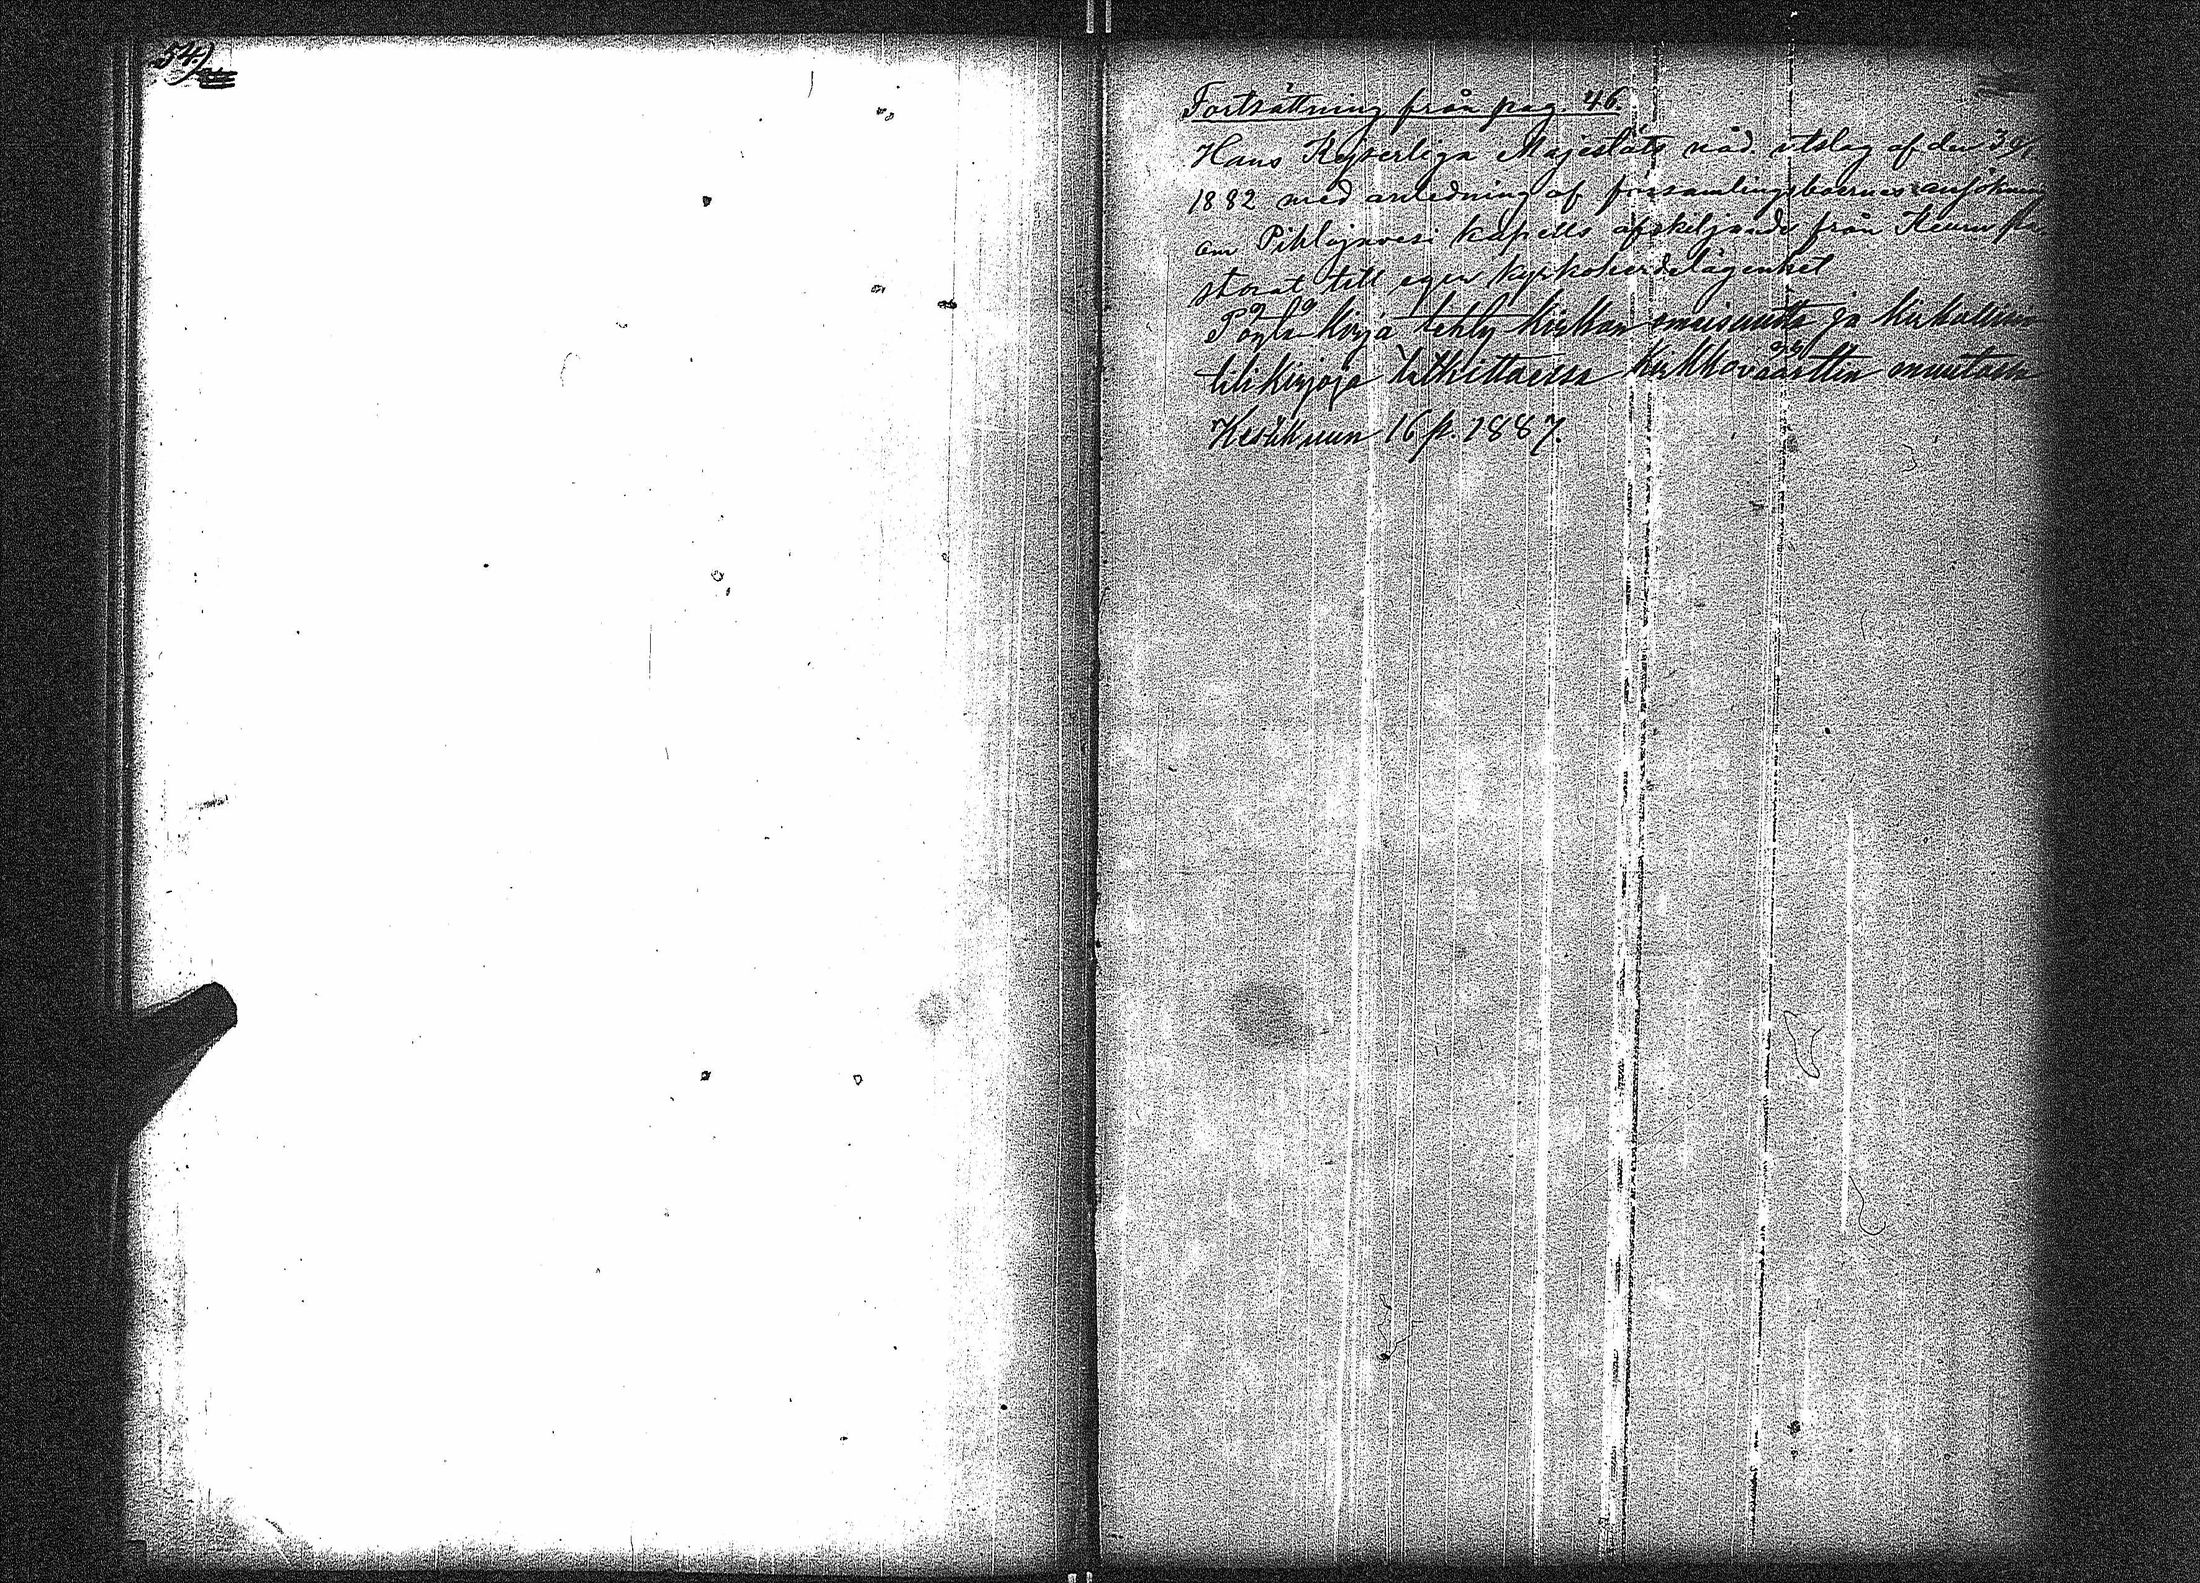 54.)
Fortsättning från pag. 46.
Hans Kejserliga Majestäts nåd. utslag af den
1882 med anledning af församlingsboernes ansökning
om Pihlajavesi kapells afskiljande från Keuru pa-
storat till egen kyrkoherdelägenhet
Pöytäkirja tehty kirkon omaisuutta ja kirkollisia
tilikirjoja tutkittaessa kirkkoväärttin muutossa
Kesäkuun 16 p. 1887.